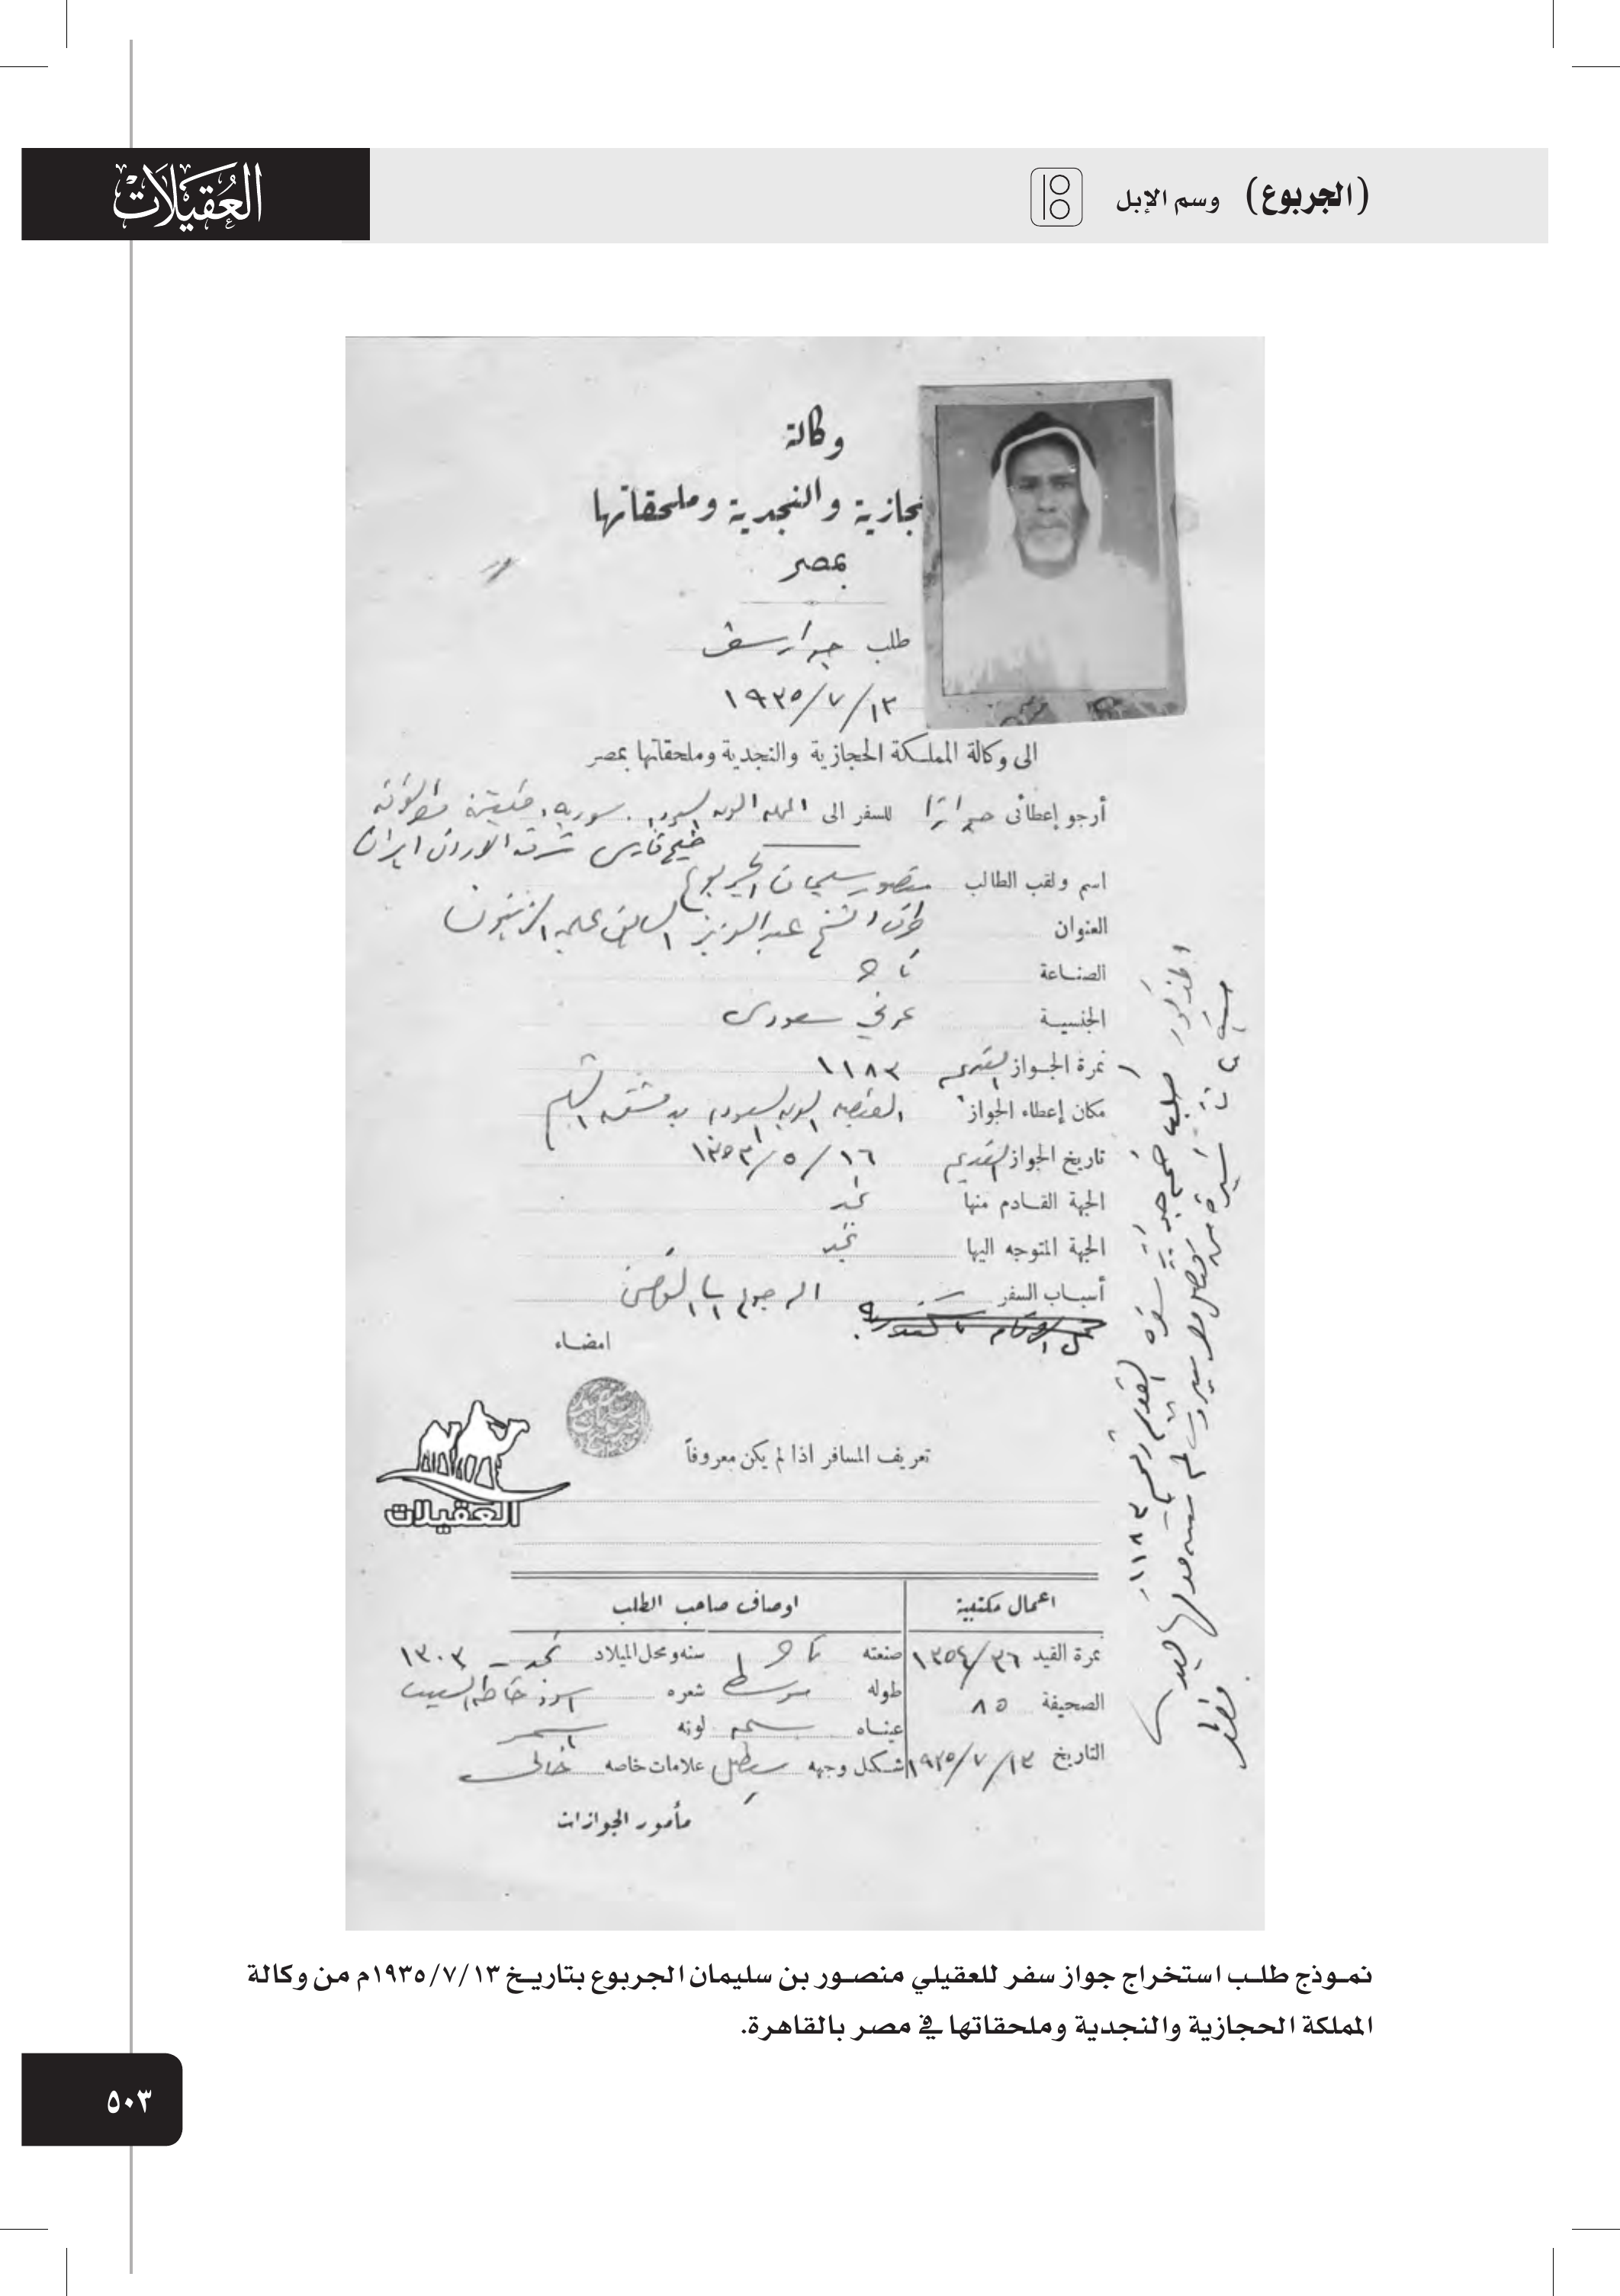 (الجربوع) وسم الإبل
العُقيلات
وكالة
حجازية والنجدية وملحقاتها
بمصر
طلب جواز سفر
١٩٣٥/٧/١٣
الى وكالة المملكة الحجازية والنجدية وملحقاتها بمصر
أرجو إعطائى جوازا للسفر الى المملكه العربيه السعوديه . سوريه . فلسطين
خليج فارس شرق الاردن ايران
اسم ولقب الطالب منصور سليمان الجربوع
العنوان طرف الشيخ عبد العزيز
الصناعة تاجر
الجنسية عربي سعودى
نمرة الجواز القديم ١١٨٣
مكان إعطاء الجواز القنصليه العربيه السعوديه بدمشق الشام
تاريخ الجواز القديم ١٦/٥/١٣٥٣
الجهة القادم منها نجد
الجهة المتوجه اليها نجد
أسباب السفر الرجوع
امضاء
العقيلات
تعريف المسافر اذا لم يكن معروفاً
اعمال مكتبية
اوصاف صاحب الطلب
نمرة القيد ١٣٥٤/٣٦ صنعته تاجر سنه ومحل الميلاد نجد – ١٣٠٣
الصحيفة ٨٥ طوله شعره
عيناه لونه اسمر
التاريخ ١٩٣٥/٧/١٣ شكل وجهه مستطيل علامات خاصه خالى
مأمور الجوازات
المذكور طلب
جواز سفره القديم رقم ١١٨٣
نموذج طلب استخراج جواز سفر للعقيلي منصور بن سليمان الجربوع بتاريخ ١٩٣٥/٧/١٣م من وكالة
المملكة الحجازية والنجدية وملحقاتها في مصر بالقاهرة.
٥٠٣